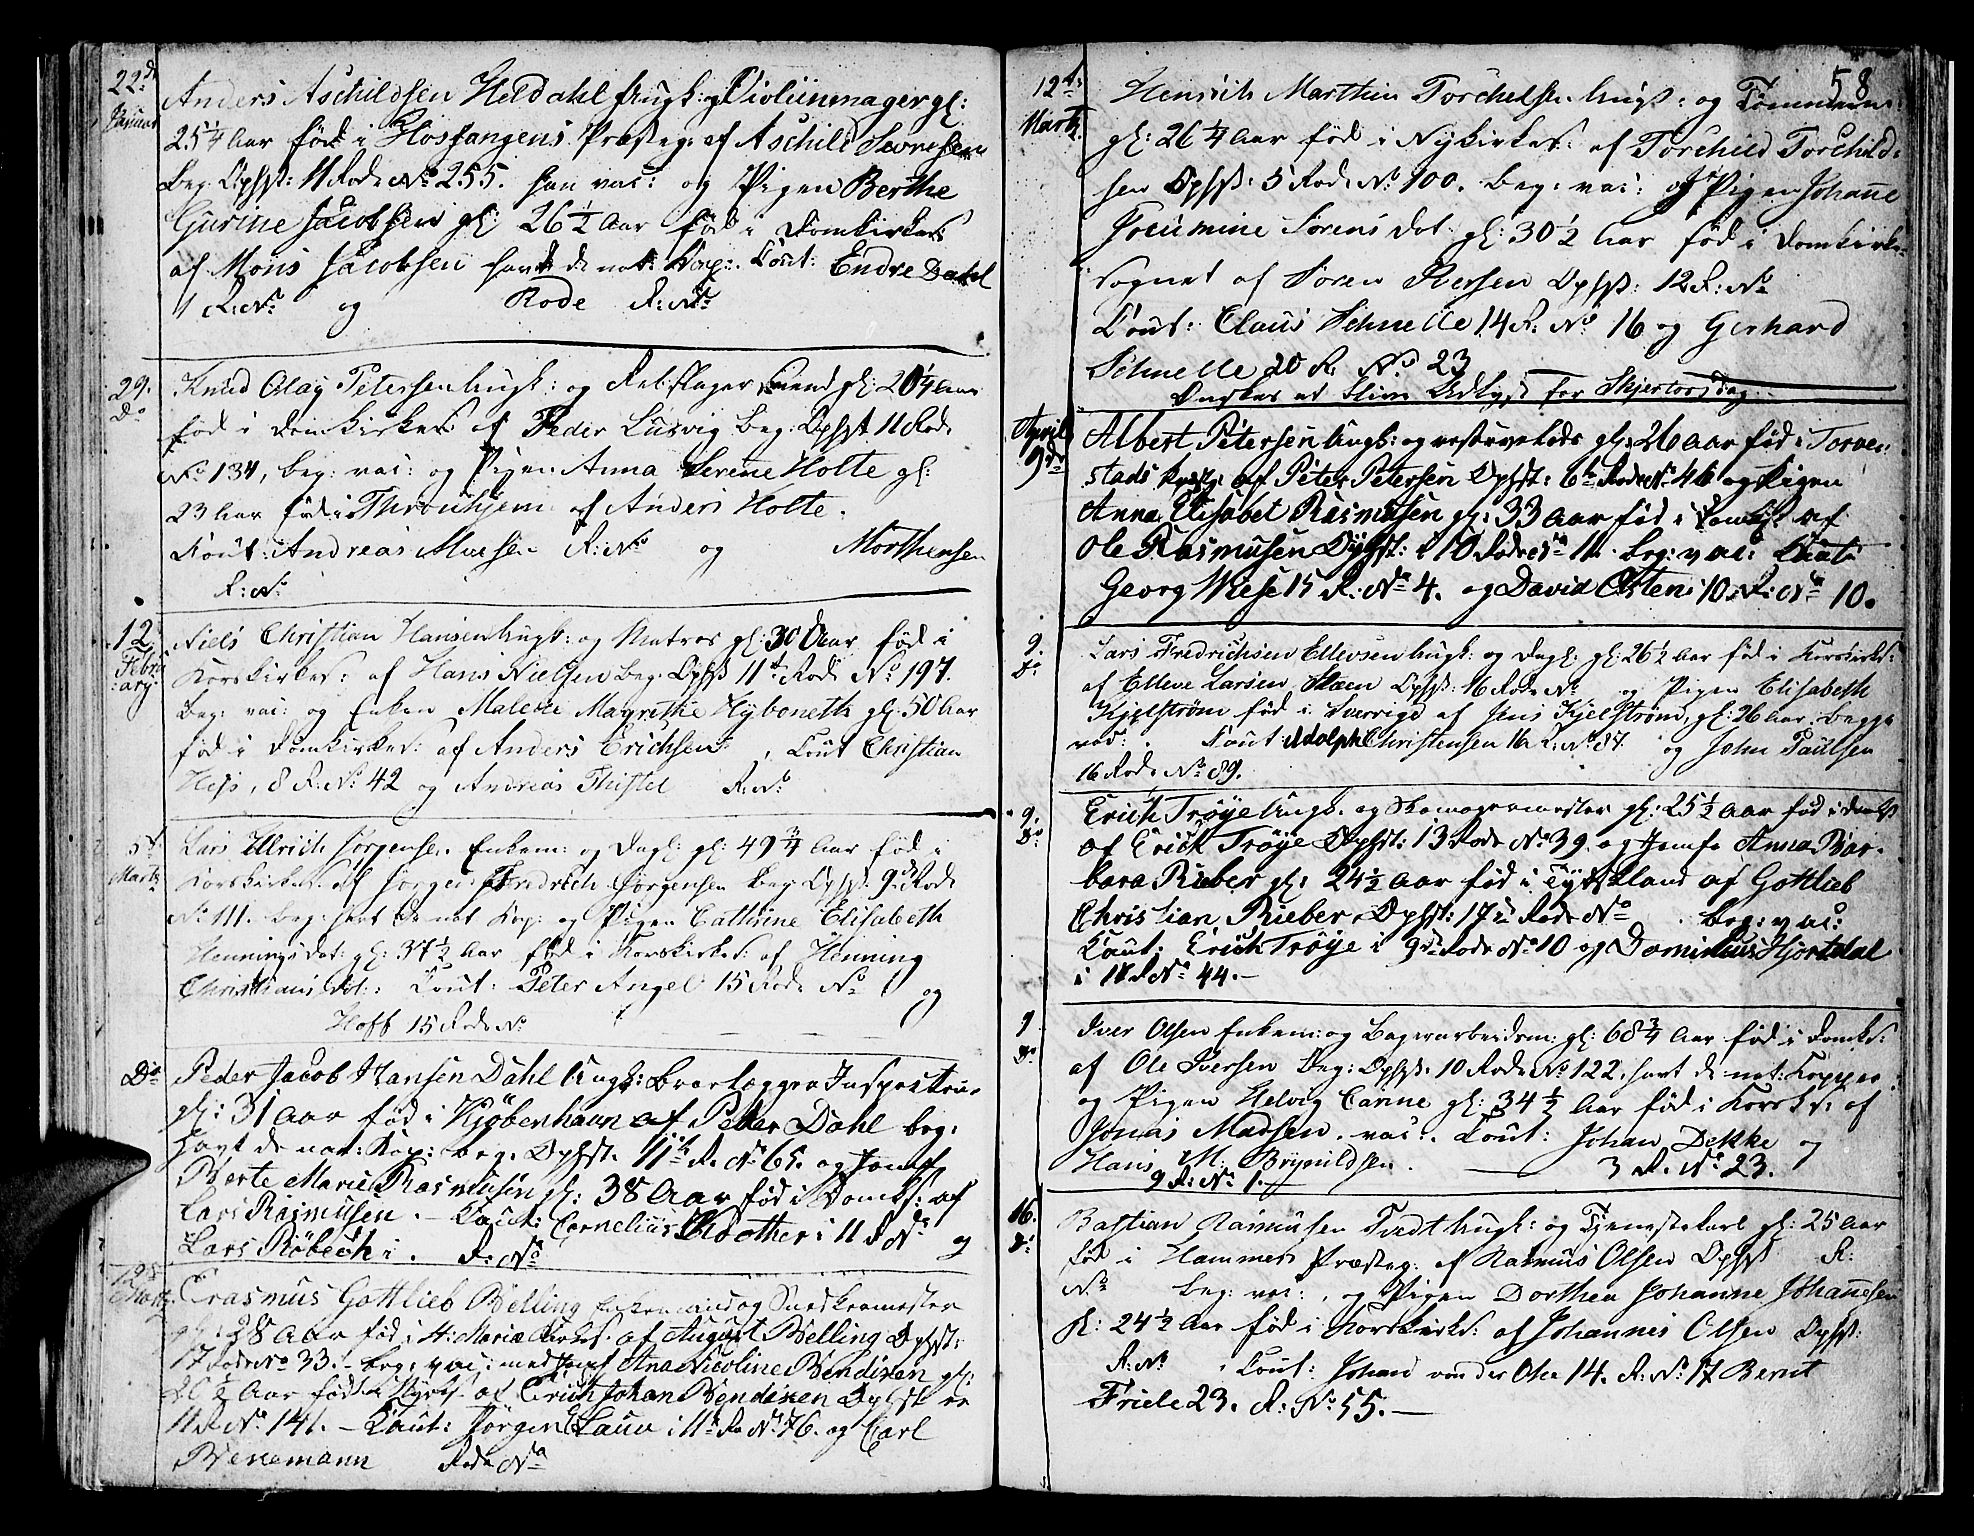 22de
Januar
Anders Aschildsen Heldahl Ungk: og Violiinmager gl:
25 1/4 Aar född i Hosfangens Præsteg: af Aschild Sevresen
beg: Ophst: 11 Rode No 255. han vac: og Pigen Berthe
Gurine Jacobsen gl: 26 1/2 Aar född i Domkirkes
af Mons Jacobsen havt de nat: Kop: Cout: Endre Dahl
11 R: No og Rode R: No
29.
Do
Knud Olay Petersen Ungk: og Rebslager Svend gl: 20 1/4 Aar
föd i Domkirkes: af Peder Ludvig beg: Ophst 11 Rode
No 134, beg: vac: og Pigen Anna Serene Holte gl:
23 Aar föd i Thronhjem af Anders Holte.
Cout: Andreas R: No og Morthensen
R: No
12.
Febru
ary.
Niels Christian Hansen Ungk: og Matros gl: 30 Aar föd i
Korskirkes: af Hans Nielsen beg. Ophst 11te Rode No 197.
beg: vac: og Enken Malene Magrethe Hyboneth gl: 50 Aar
föd i Domkirkes: af Anders Erichsen. Cout Christian
Hess, 8 R: No 42 og Andreas Thistel R: No
5te
Martz
Lars Ullrich Jörgensen Enkem: og Dagl: gl: 49 3/4 Aar föd i
Korskirkes. af Jörgen Fredrich Jörgensen beg: Ophst 9de Rode
No 111. beg: havt de nat Kop: og Pigen Cathrine Elisabeth
Henningsdat: gl: 37 1/2 Aar föd i Korskirkes: af Henning
Christians dat: Cout: Peter Angel 15 Rode No og
Hoff 15 Rode No
Do
Peder Jacob Hansen Dahl Ungk: Brolægger Inspecteur
gl: 31 Aar föd i Kjöbenhaun af Peder Dahl beg:
havt de nat: Kop: beg. Ophst. 11te R. No 65. og Jomf
Berte Marie Rasmusen gl: 38 Aar föd i Domk: af
Lars Rasmusen. – Cout: Cornelius Kloother i 11 R No og
Lars Röbech i. R: No
12
Martz
Erasmus Gottlieb Belling Enkemand og Snedkermester
gl: 38 Aar föd i St: Mariæ Kirkes. af August Belling Ophst:
17 Rode No 33. – beg: vac: med Jomf Ana Nicoline Bendixen gl:
20 1/2 Aar föd i af Erich Johan Bendixen Ophst
11 R No 141. – Caut: Jörgen i 11te Ro No 76. og Carl
Benemann Rode No
58
12te
Martz
Henrich Marthin Torchelsen Ungk: og Tömmerm:
gl: 26 1/4 Aar föd i Nykirkes: af Torchild Torchild:
sen Ophst: 5 Rode No 100. beg: vac: og Pigen Johanne
Sörens dat. gl: 30 1/2 Aar föd i Domkirke
sognet af Sören Iversen Ophst: 12 R: No
Cout: Claus Schnelle 14 R: No 16 og Gerhard
Schnelle 20 R. No 23
Önskes at blive Udlyst for Skjertorsdag
April
9de
Albert Petersen Ungk: og gl: 26 Aar föd i Torven
stads Præstg: af Peter Petersen Ophst: 6te Rode No 46 og Pigen
Anna Elisabet Rasmusen gl: 33 Aar föd i Domk: af
Ole Rasmusen Ophst: i 10 Rode No 11. beg: vac: Caut:
Georg Wiese 15 R: No 4. og David Osten i 10. R: No 10.
9.
Do
Lars Fredrichsen Ellevsen Ungk: og Dagl: gl: 26 1/2 Aar föd i Korskirks:
af Elleve Larsen Ophst: 16 Rode No og Pigen Elisabeth
Kjelström föd i Sverrige af Jens Kjelström, gl: 26 Aar begge
vac: Cout: Adolph Christensen 16 R: No 87. og John Paulsen
16 Rode No 89.
9.
Do
Erich Tröye Ungk. og Skomagermester gl: 25 1/2 Aar föd i Domk
af Erich Tröye Ophst: 13 Rode No 39. og Jomfr Anna Bar-
bara Rieber gl: 24 1/2 Aar föd i Tydskland af Gottlieb
Christian Rieber Ophst: 17de Rode No beg: vac:
Caut: Erich Tröye i 9de Rode No 10 og Dominicus Hjortdal
i 18 R No 44. –
9
Do
Iver Olsen Enkem: og gl: 68 3/4 Aar föd i Domks:
af Ole Iversen beg: Ophst. 10 Rode No 122. havt de nat: Kopper
og Pigen Helvig Canne gl: 34 1/2 Aar föd i Korsk: af
Jonas Madsen. vac: Cout: Johan Dekke og
Hans M: Brynildsen. – 3 R. No 23.
9 R: No 1. –
16.
Do
Bastian Rasmusen Tvedt Ungk: og Tjenestekarl gl: 25 Aar
föd i Hammers Præsteg: af Rasmus Olsen Ophst R:
No beg: vac:, og Pigen Dorthea Johanne Johannesen
gl: 24 1/2 Aar föd i Korskirks: af Johannes Olsen Ophst:
R: No i Cout: Johan von der Ohe 14. R: No 17 Bernt
Friele 23. R: No 55. –